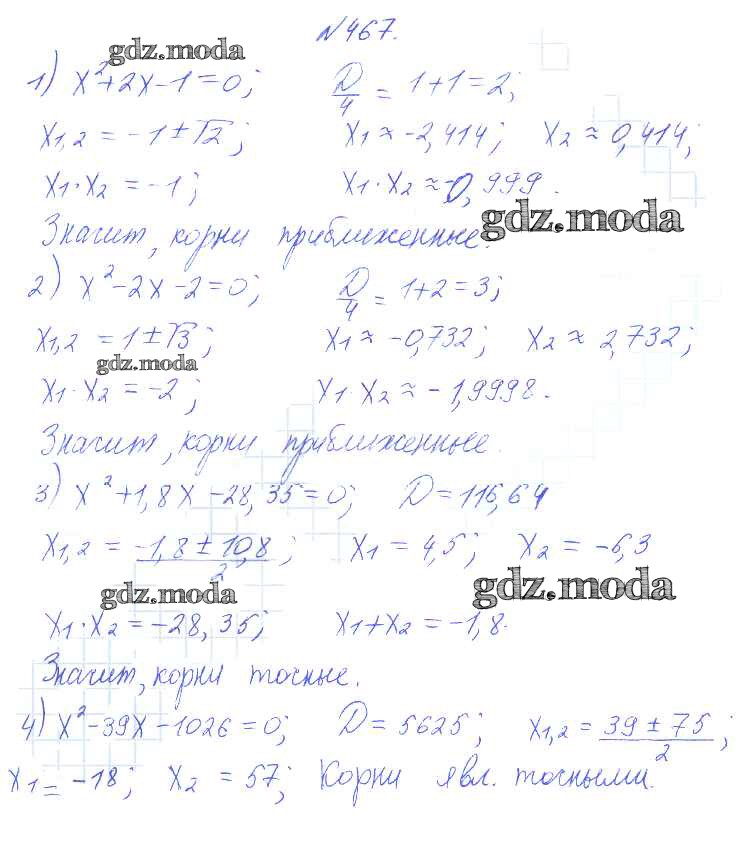 №467.
gdz.moda
1) x²+2x-1=0; D/4 = 1+1=2;
x₁,₂ = -1±√2; x₁ ≈ -2,414; x₂ ≈ 0,414;
x₁·x₂ = -1; x₁·x₂ ≈ -0,999.
gdz.moda
Значит, корни приближенные.
2) x²-2x-2=0; D/4 = 1+2=3;
x₁,₂ = 1±√3; x₁ ≈ -0,732; x₂ ≈ 2,732;
gdz.moda
x₁·x₂ = -2; x₁·x₂ ≈ -1,9998.
Значит, корни приближенные.
3) x²+1,8x-28,35=0; D=116,64
x₁,₂ = (-1,8±10,8)/2; x₁ = 4,5; x₂ = -6,3
gdz.moda gdz.moda
x₁·x₂ = -28,35; x₁+x₂ = -1,8.
Значит, корни точные.
4) x²-39x-1026=0; D=5625; x₁,₂ = (39±75)/2;
x₁ = -18; x₂ = 57; Корни явл. точными.